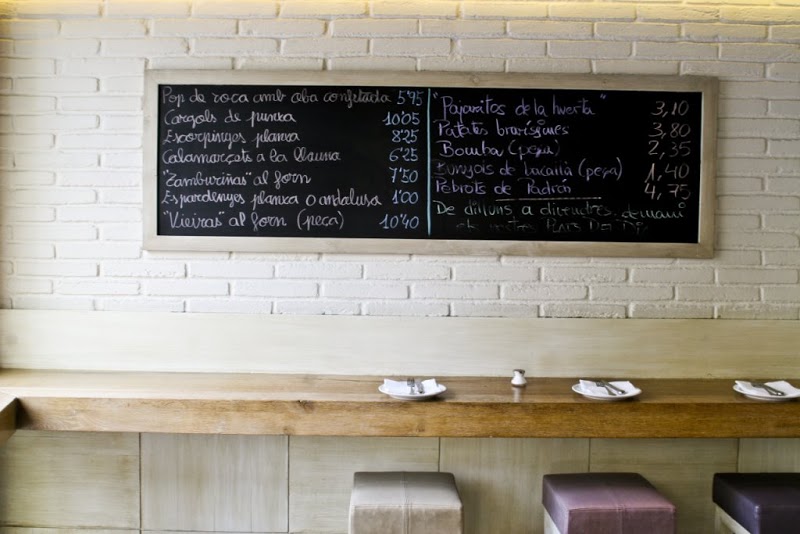 Pop de roca amb ceba confitada 5'75
Cargols de punxa 10'05
Escorpinyes planxa 8'25
Calamarçats a la llauna 6'25
"Zamburiñas" al forn 7'50
Espardenyes planxa o andalusa 1'00
"Vieiras" al forn (peça) 10'40
"Pajaritos de la huerta" 3,10
Patates bravíssimes 3,80
Bomba (peça) 2,35
Bunyols de bacallà (peça) 1,40
Pebrots de Padrón 4,75
De dilluns a divendres, demani
els nostres Plats Del Dia